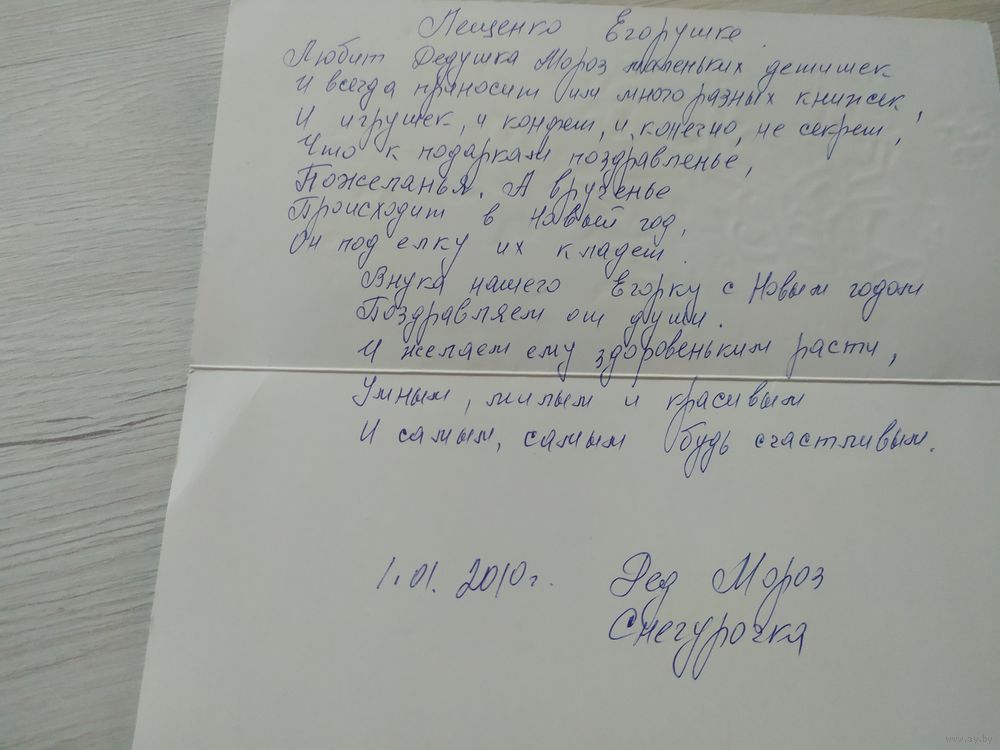 Лещенко Егорушке.
Любит Дедушка Мороз маленьких детишек
И всегда приносит им много разных книжек,
И игрушек, и конфет, и, конечно, не секрет,
Что к подаркам поздравленье,
Пожеланья. А врученье
Происходит в Новый год,
Он под елку их кладет.
Внука нашего Егорку с Новым годом
Поздравляем от души.
И желаем ему здоровеньким расти,
Умным, милым и красивым
И самым, самым будь счастливым.
1.01.2010г. Дед Мороз
Снегурочка
www.ay.by